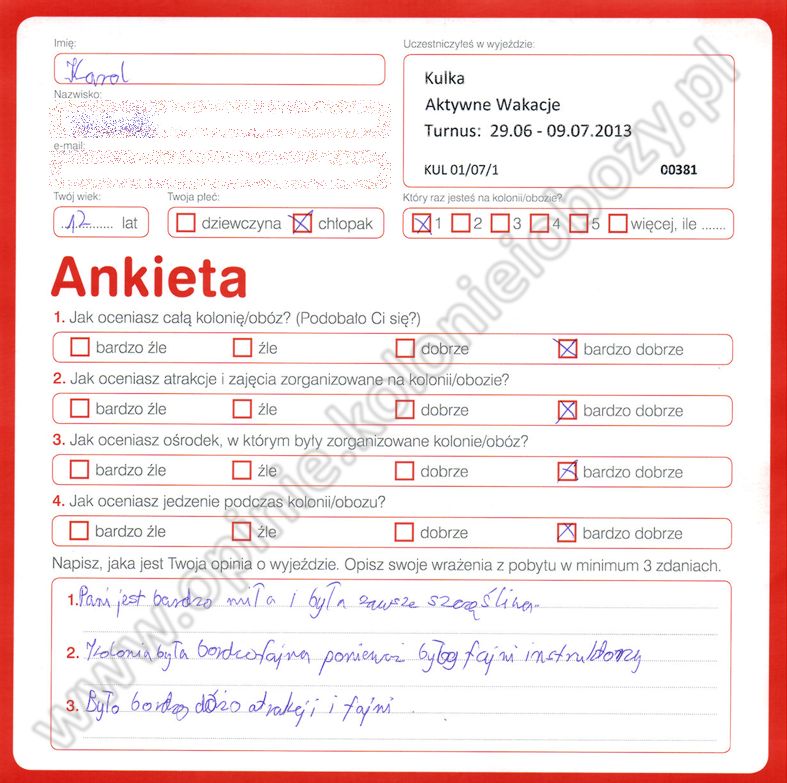 Imię:
Karol
Nazwisko:
e-mail:
Twój wiek:
12 lat
Twoja płeć:
dziewczyna chłopak
Uczestniczyłeś w wyjeździe:
Kulka
Aktywne Wakacje
Turnus: 29.06 - 09.07.2013
KUL 01/07/1 00381
Który raz jesteś na kolonii/obozie?
1 2 3 4 5 więcej, ile .......
Ankieta
1. Jak oceniasz całą kolonię/obóz? (Podobało Ci się?)
bardzo źle źle dobrze bardzo dobrze
2. Jak oceniasz atrakcje i zajęcia zorganizowane na kolonii/obozie?
bardzo źle źle dobrze bardzo dobrze
3. Jak oceniasz ośrodek, w którym były zorganizowane kolonie/obóz?
bardzo źle źle dobrze bardzo dobrze
4. Jak oceniasz jedzenie podczas kolonii/obozu?
bardzo źle źle dobrze bardzo dobrze
Napisz, jaka jest Twoja opinia o wyjeździe. Opisz swoje wrażenia z pobytu w minimum 3 zdaniach.
1. Pani jest bardzo miła i była zawsze szczęśliwa.
2. Kolonia była bardzo fajna ponieważ był fajni instruktorzy
3. Było bardzo dużo atrakcji i fajni.
www.opinie.kolonieiobozy.pl